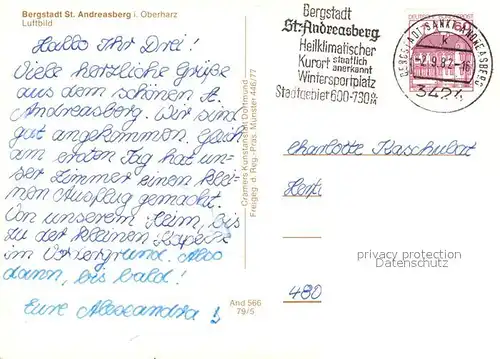 Bergstadt St. Andreasberg i. Oberharz
Luftbild
Hallo Ihr Drei!
Viele herzliche Grüße
aus dem schönen St.
Andreasberg. Wir sind
gut angekommen. Gleich
am ersten Tag hat un-
ser Zimmer einen klei-
nen Ausflug gemacht.
Von unserem Heim, bis
zu der kleinen Kapelle
im Vordergrund. Also
dann, bis bald!
Eure Alexandra
And 566
79/5
Cramers Kunstanstalt Dortmund
Freigeg. d. Reg.-Präs. Münster 446/77
Bergstadt
St. Andreasberg
Heilklimatischer
Kurort staatlich anerkannt
Wintersportplatz
Stadtgebiet 600-790 m
BERGSTADT SANKT ANDREASBERG
k
-2.9.82-16
3424
60
Charlotte Kaschulat
480
privacy protection
Datenschutz